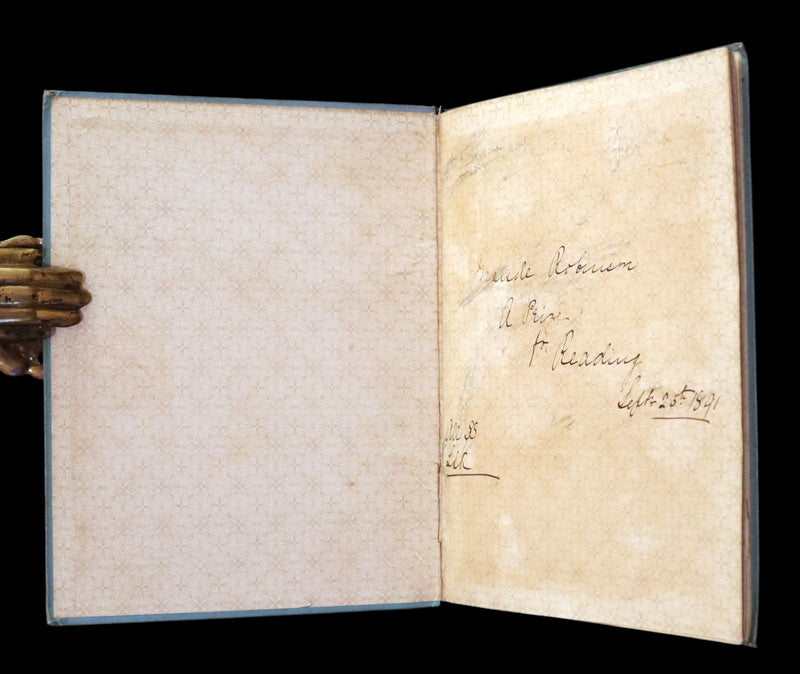 Maude Robinson
A Prize
for Reading
Sept 25th 1891